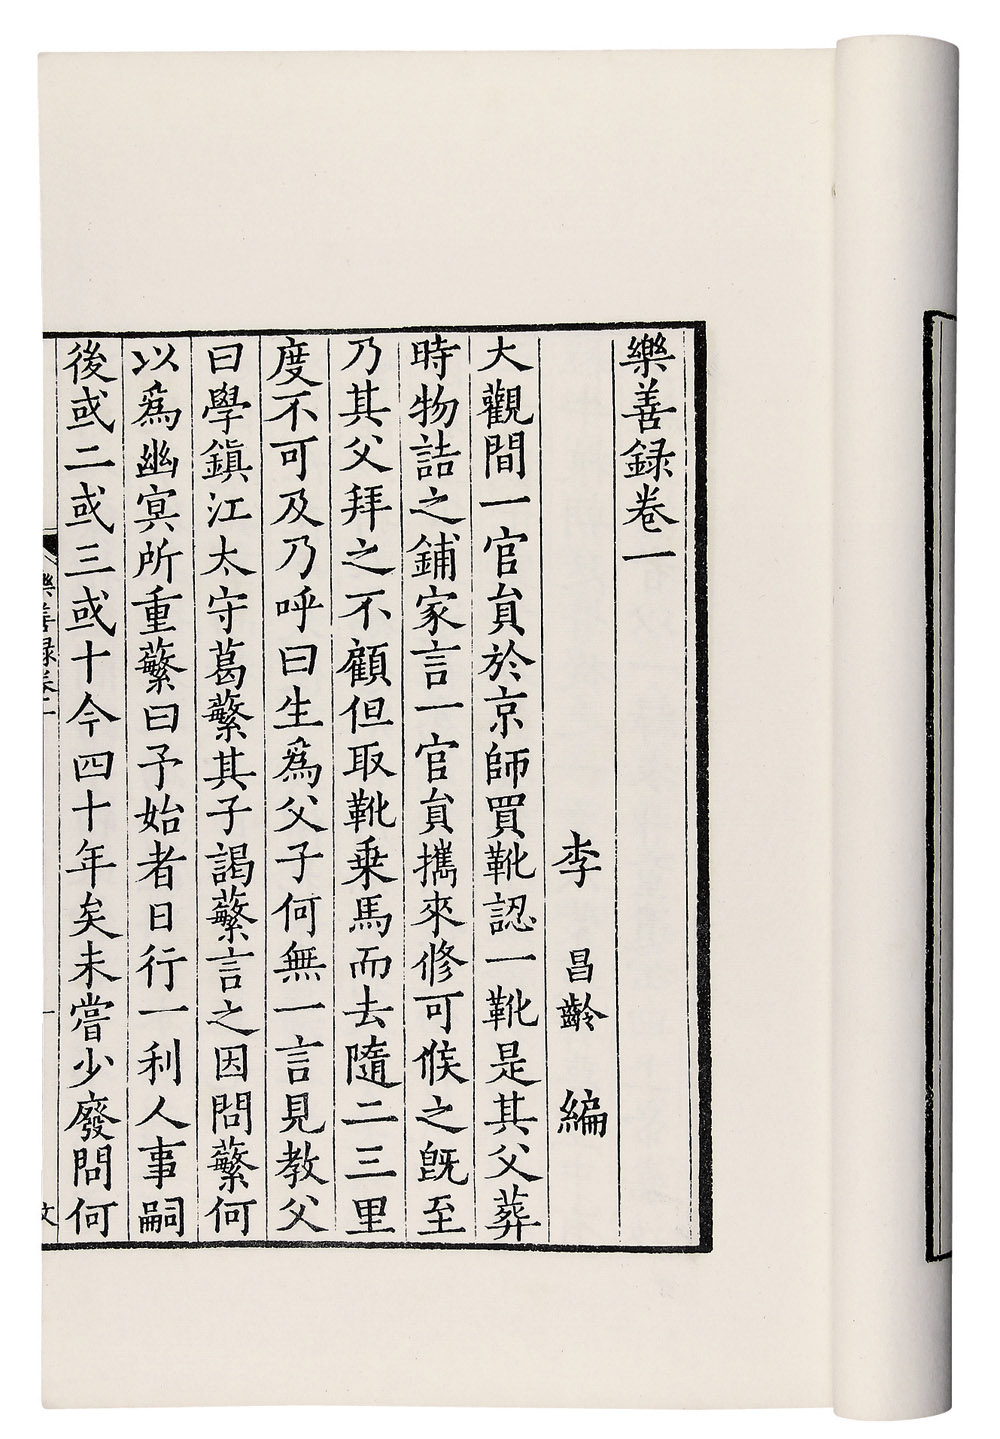 樂善録卷一
李昌齡編
大觀間一官貟於京師買靴認一靴是其父葬
時物詰之鋪家言一官貟攜來修可候之旣至
乃其父拜之不顧但取靴乗馬而去隨二三里
度不可及乃呼曰生爲父子何無一言見教父
曰學鎮江太守葛蘩其子謁蘩言之因問蘩何
以爲幽冥所重蘩曰予始者日行一利人事嗣
後或二或三或十今四十年矣未嘗少廢問何
樂善録卷一
一
文